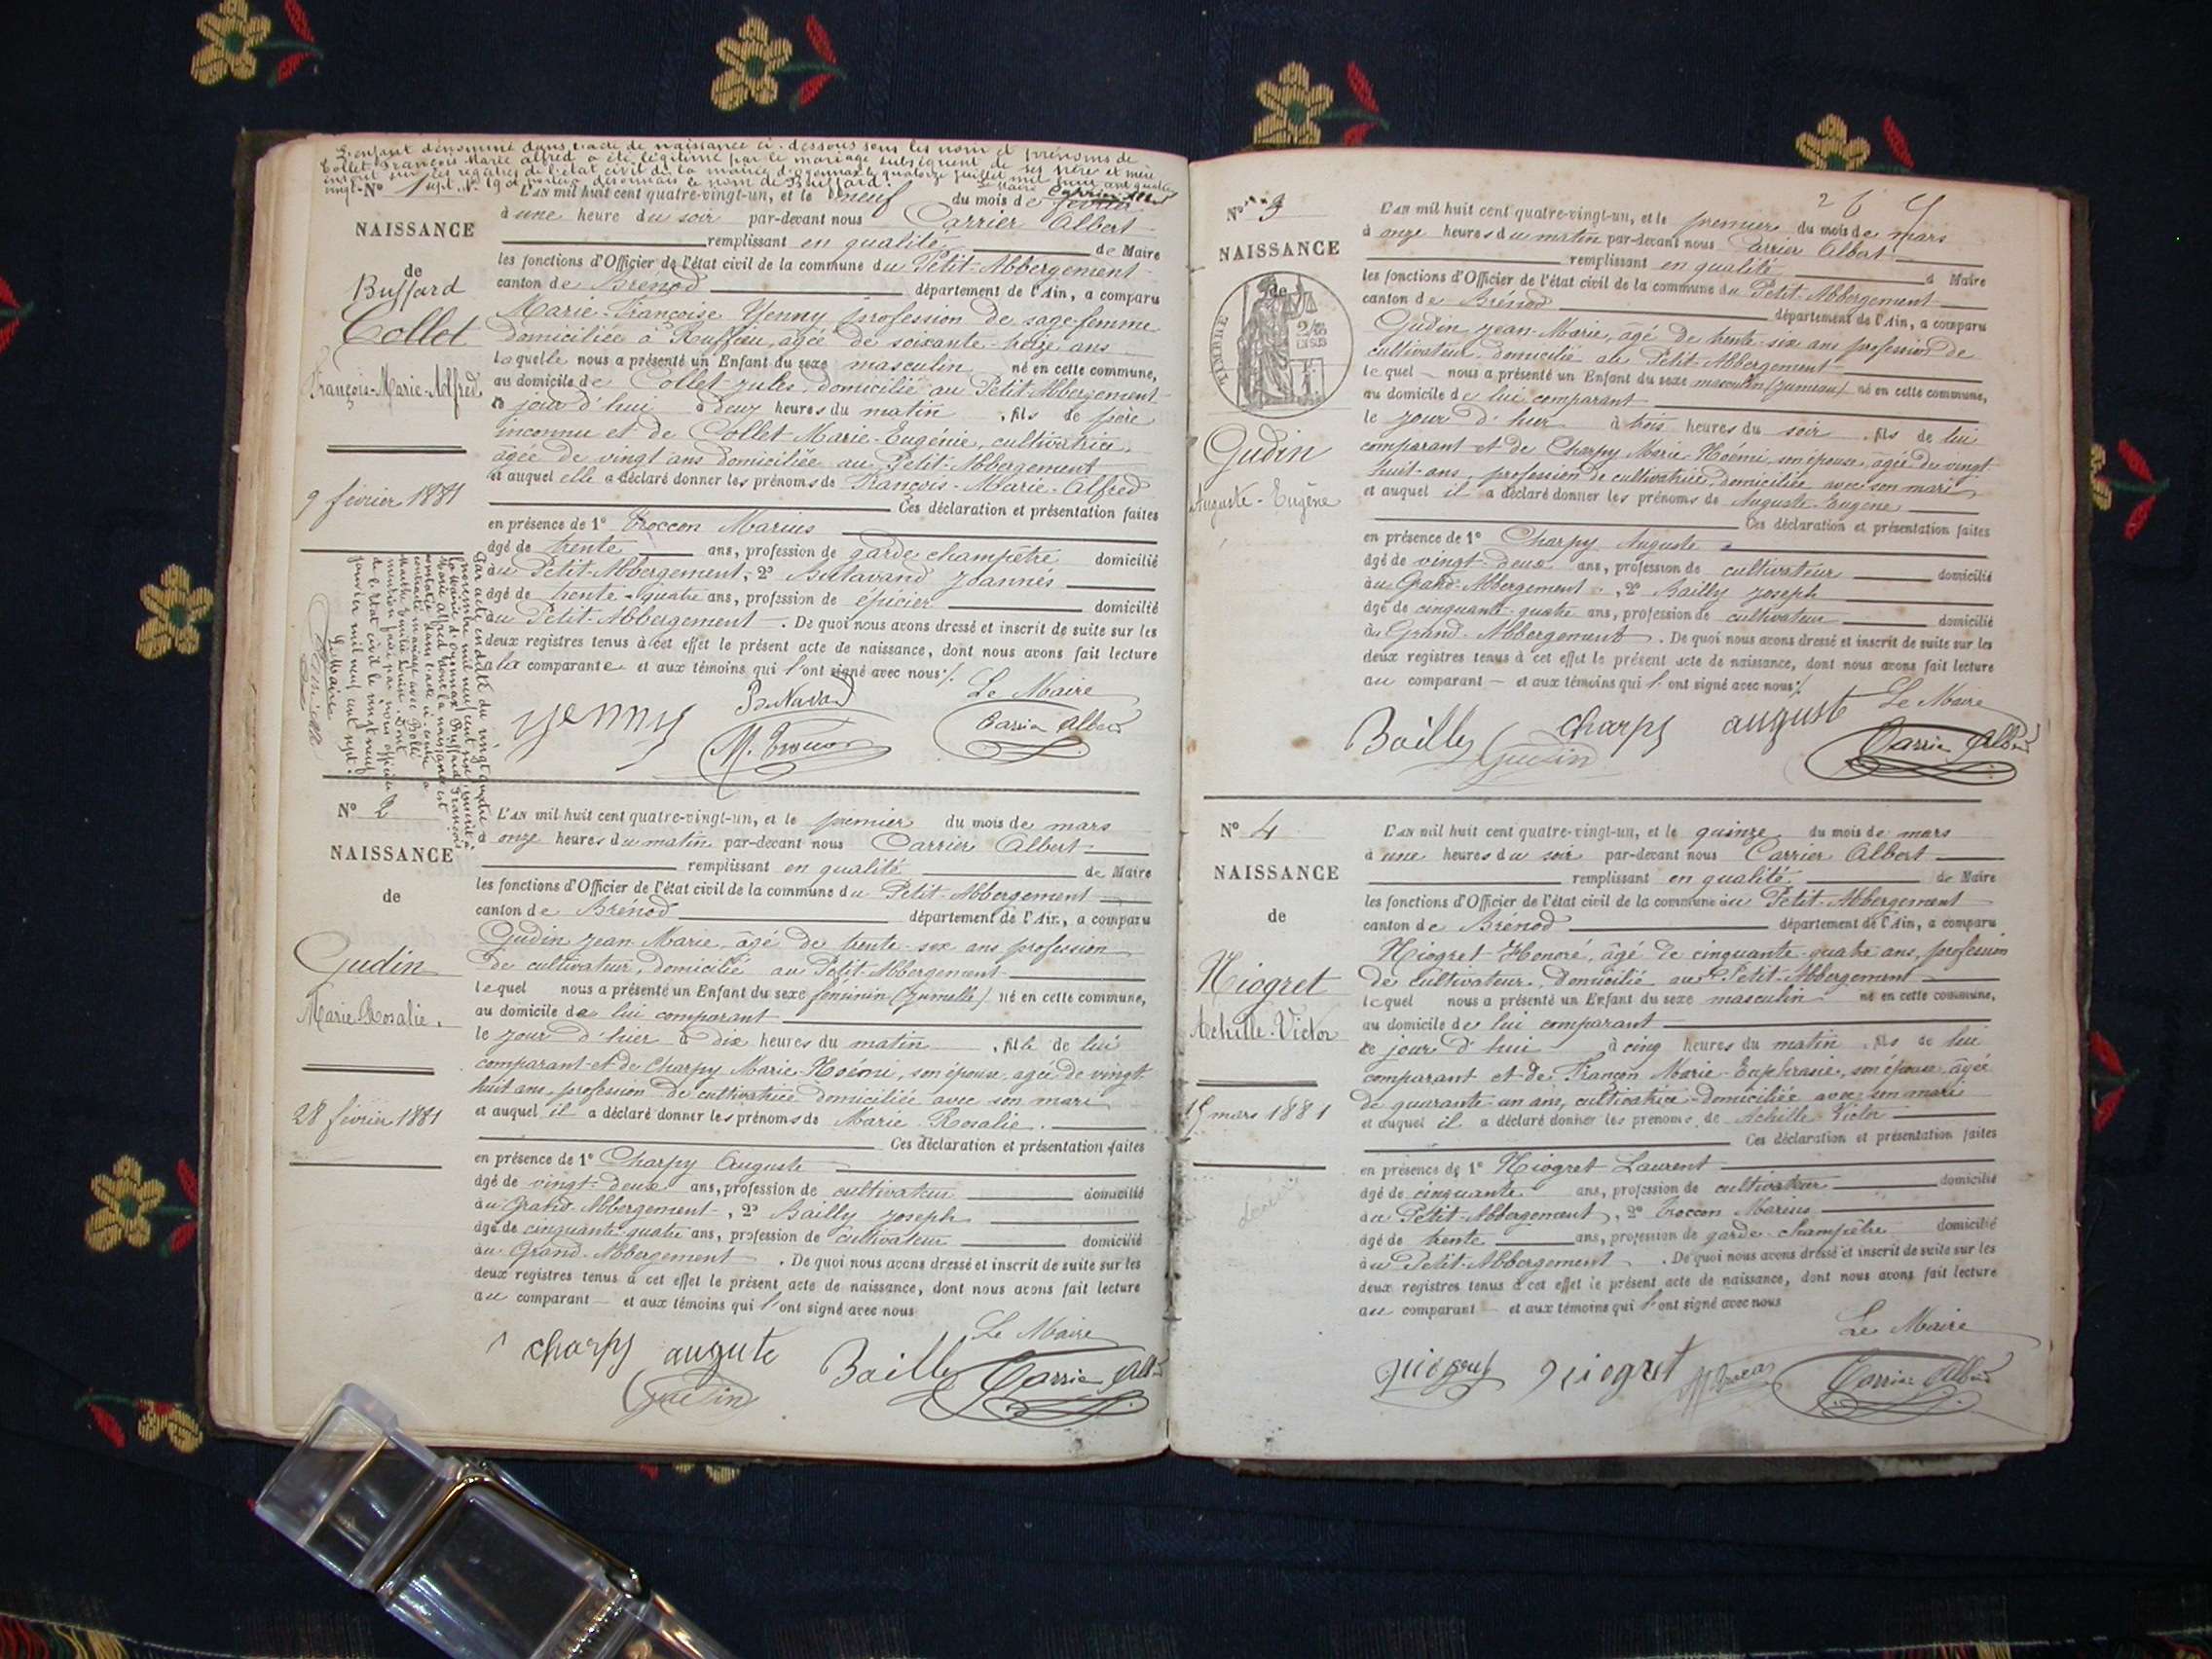 L'enfant dénommé dans l'acte de naissance ci-dessous sous les nom et prénoms de
Collet François Marie Alfred a été légitimé par le mariage subséquent de ses père et mère
inscrit sur les registres de l'état civil de la mairie d'Oyonnax le quatorze juillet mil neuf cent quatre
désormais le nom de Buffard.
Le Maire
N° 1
NAISSANCE
de
Buffard
Collet
François-Marie-Alfred
9 février 1881
L'AN mil huit cent quatre-vingt-un, et le neuf du mois de février
à une heure du soir par-devant nous Carrier Albert
remplissant en qualité de Maire
les fonctions d'Officier de l'état civil de la commune du Petit-Abbergement
canton de Brénod département de l'Ain, a comparu
Marie Françoise Yenny profession de sage-femme
domiciliée à Ruffieu, agée de soixante-treize ans
laquelle nous a présenté un Enfant du sexe masculin né en cette commune,
au domicile de Collet Jules, domicilié au Petit-Abbergement
ce jour d'hui à deux heures du matin, fils de père
inconnu et de Collet Marie-Eugénie, cultivatrice,
agée de vingt ans domiciliée au Petit-Abbergement
et auquel elle a déclaré donner les prénoms de François-Marie-Alfred
Ces déclaration et présentation faites
en présence de 1° Troccon Marius
âgé de trente ans, profession de garde champêtre domicilié
au Petit-Abbergement, 2° Butavand Joannès
âgé de trente-quatre ans, profession de épicier domicilié
au Petit-Abbergement. De quoi nous avons dressé et inscrit de suite sur les
deux registres tenus à cet effet le présent acte de naissance, dont nous avons fait lecture
à la comparante et aux témoins qui l'ont signé avec nous
Le Maire
Yenny
Carrier Albert
N° 2
NAISSANCE
de
Gudin
Marie-Rosalie.
28 février 1881
L'AN mil huit cent quatre-vingt-un, et le premier du mois de mars
à onze heures du matin par-devant nous Carrier Albert
remplissant en qualité de Maire
les fonctions d'Officier de l'état civil de la commune du Petit-Abbergement
canton de Brénod département de l'Ain, a comparu
Gudin Jean-Marie, âgé de trente-six ans profession
de cultivateur, domicilié au Petit-Abbergement
lequel nous a présenté un Enfant du sexe féminin (jumelle) né en cette commune,
au domicile de lui comparant
le jour d'hier à dix heures du matin, fille de lui
comparant et de Charpy Marie-Noémi, son épouse, agée de vingt
huit ans, profession de cultivatrice domiciliée avec son mari
et auquel il a déclaré donner les prénoms de Marie Rosalie.
Ces déclaration et présentation faites
en présence de 1° Charpy Auguste
âgé de vingt-deux ans, profession de cultivateur domicilié
au Grand-Abbergement, 2° Bailly Joseph
âgé de cinquante-quatre ans, profession de cultivateur domicilié
au Grand-Abbergement. De quoi nous avons dressé et inscrit de suite sur les
deux registres tenus à cet effet le présent acte de naissance, dont nous avons fait lecture
au comparant et aux témoins qui l'ont signé avec nous
Le Maire
charpy augute Bailly Carrier Albert
Gudin
N° 3
NAISSANCE
de
TIMBRE
Gudin
Auguste-Eugène
L'AN mil huit cent quatre-vingt-un, et le premier du mois de mars
à onze heures du matin par-devant nous Carrier Albert
remplissant en qualité d Maire
les fonctions d'Officier de l'état civil de la commune du Petit-Abbergement
canton de Brénod département de l'Ain, a comparu
Gudin Jean-Marie, agé de trente-six ans profession de
cultivateur, domicilié au Petit-Abbergement
lequel nous a présenté un Enfant du sexe masculin (jumeau) né en cette commune,
au domicile de lui comparant
le jour d'hier à trois heures du soir, fils de lui
comparant et de Charpy Marie-Noémi, son épouse, âgée de vingt
huit ans, profession de cultivatrice, domiciliée avec son mari
et auquel il a déclaré donner les prénoms de Auguste-Eugène
Ces déclaration et présentation faites
en présence de 1° Charpy Auguste
âgé de vingt-deux ans, profession de cultivateur domicilié
au Grand-Abbergement, 2° Bailly Joseph
âgé de cinquante-quatre ans, profession de cultivateur domicilié
au Grand-Abbergement. De quoi nous avons dressé et inscrit de suite sur les
deux registres tenus à cet effet le présent acte de naissance, dont nous avons fait lecture
au comparant et aux témoins qui l'ont signé avec nous
Le Maire
Bailly charpy auguste Carrier Albert
Gudin
N° 4
NAISSANCE
de
Niogret
Achille-Victor
15 mars 1881
L'AN mil huit cent quatre-vingt-un, et le quinze du mois de mars
à une heures du soir par-devant nous Carrier Albert
remplissant en qualité de Maire
les fonctions d'Officier de l'état civil de la commune au Petit-Abbergement
canton de Brénod département de l'Ain, a comparu
Niogret Honoré, âgé de cinquante-quatre ans, profession
de cultivateur, domicilié au Petit-Abbergement
lequel nous a présenté un Enfant du sexe masculin né en cette commune,
au domicile de lui comparant
ce jour d'hui à cinq heures du matin, fils de lui
comparant et de Françon Marie-Euphrasie, son épouse âgée
de quarante-un ans, cultivatrice domiciliée avec son mari
et auquel il a déclaré donner les prénoms de Achille-Victor
Ces déclaration et présentation faites
en présence de 1° Niogret Laurent
âgé de cinquante ans, profession de cultivateur domicilié
au Petit-Abbergement, 2° Troccon Marius
âgé de trente ans, profession de garde-champêtre domicilié
au Petit-Abbergement. De quoi nous avons dressé et inscrit de suite sur les
deux registres tenus à cet effet le présent acte de naissance, dont nous avons fait lecture
au comparant et aux témoins qui l'ont signé avec nous
Le Maire
niogret Carrier Albert